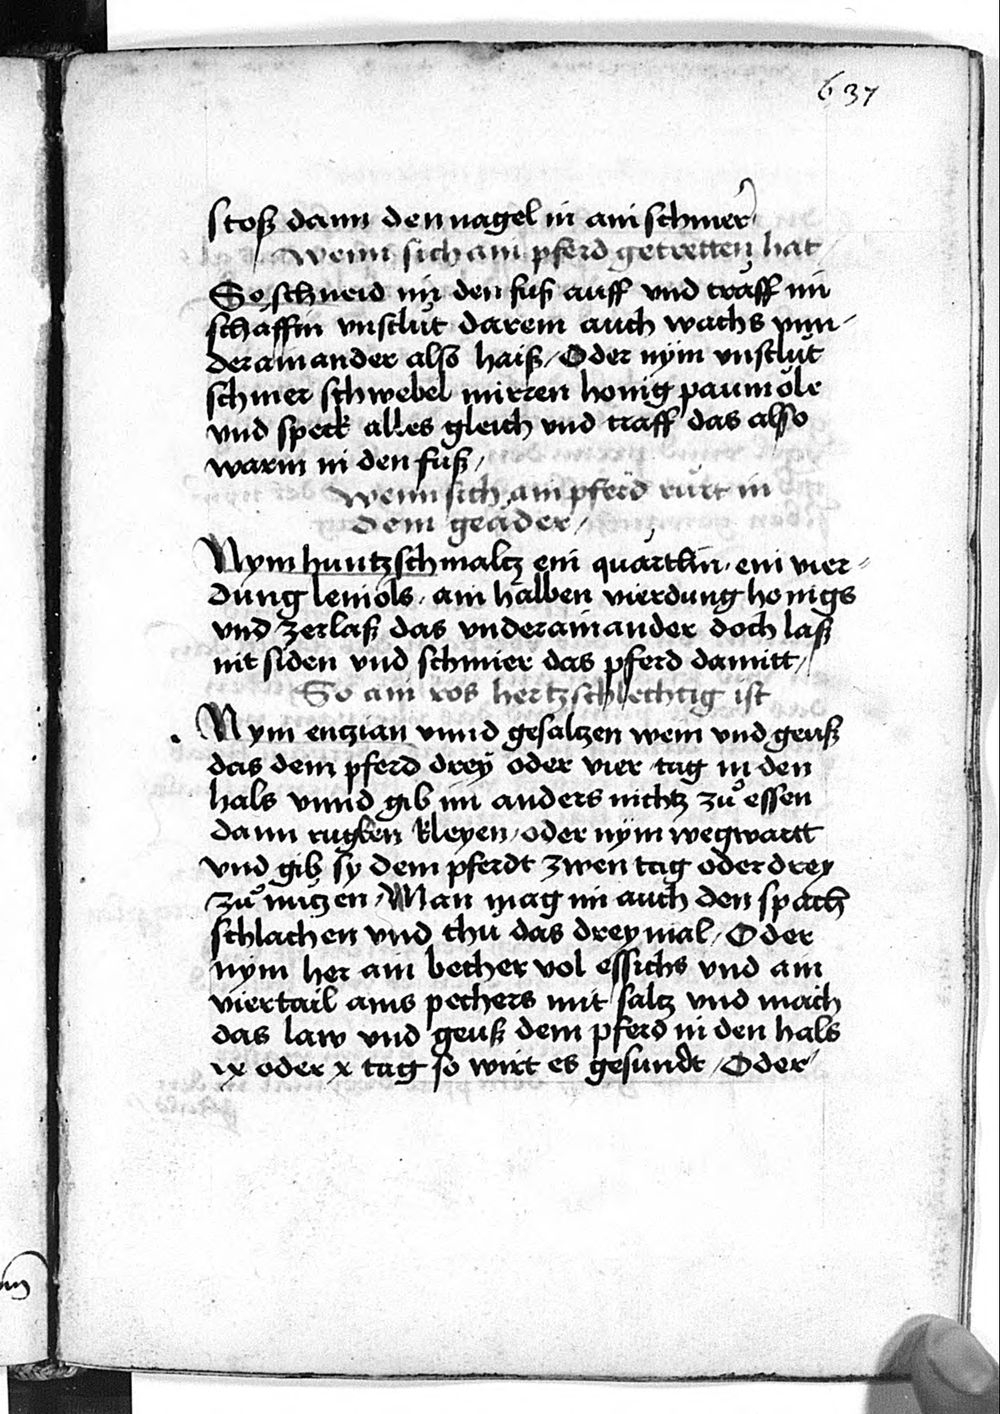 637
stosß dann den nagel in ain schmer
Wenn sich ain pferd getretten hat
So schneid im den fuß auff vnd traff im
schaffin vnschlut darein auch wachs vnn-
derainander also haiß / Oder nÿm vnschlut
schmer schwebel mirren honig paumöle
vnd speck alles gleich vnd traff das also
warm in den fuß /
Wenn sich ain pferd rürt in
dem geäder /
Nym huntzschmaltz ein quartlin · ein vier-
dung leinöls · ain halben vierdung honigs
vnd zerlaß das vnderainander doch laß
nit siden vnd schmier das pferd damitt /
So ain ros hertzschlechtig ist
Nym entzian vnnd gesaltzen wein vnd geuß
das dem pferd dreÿ oder vier tag in den
hals vnnd gib im anders nichtz zů essen
dann rugken kleyen / oder nÿm wegwartt
vnd gib sy dem pferdt zwen tag oder drey
zů nutzen / Man mag im auch den spach
schlachen vnd thu das drey mal / Oder
nÿm her ain becher vol essichs vnd ain
viertail ains pechers mit saltz vnd mach
das law vnd geuß dem pferd in den hals
ix oder x tag so wirt es gesundt / Oder